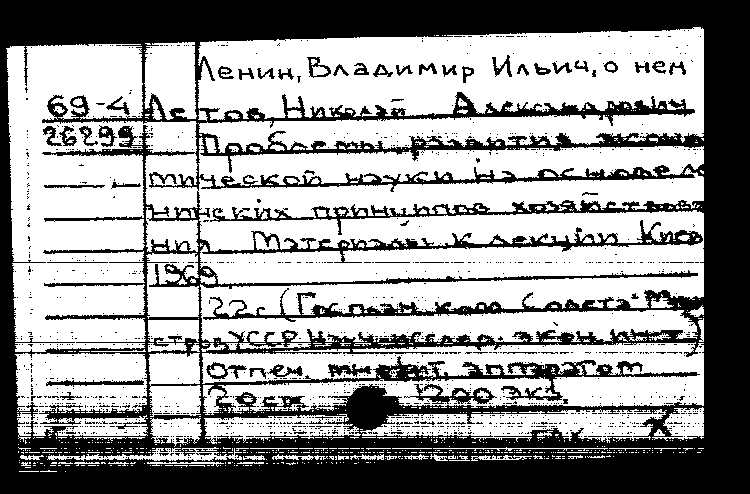 Ленин, Владимир Ильич, о нем
69-4 Летов, Николай Александрович
26299 Проблемы развития эконо
мической науки на основе ле
нинских принципов хозяйствова
ния. Материалы к лекции Киев
1969
22с (Госплан
Совета Мин
стров УССР Науч-исслед. экон. ин-т)
Отпеч. множит. аппаратом
1200 экз.